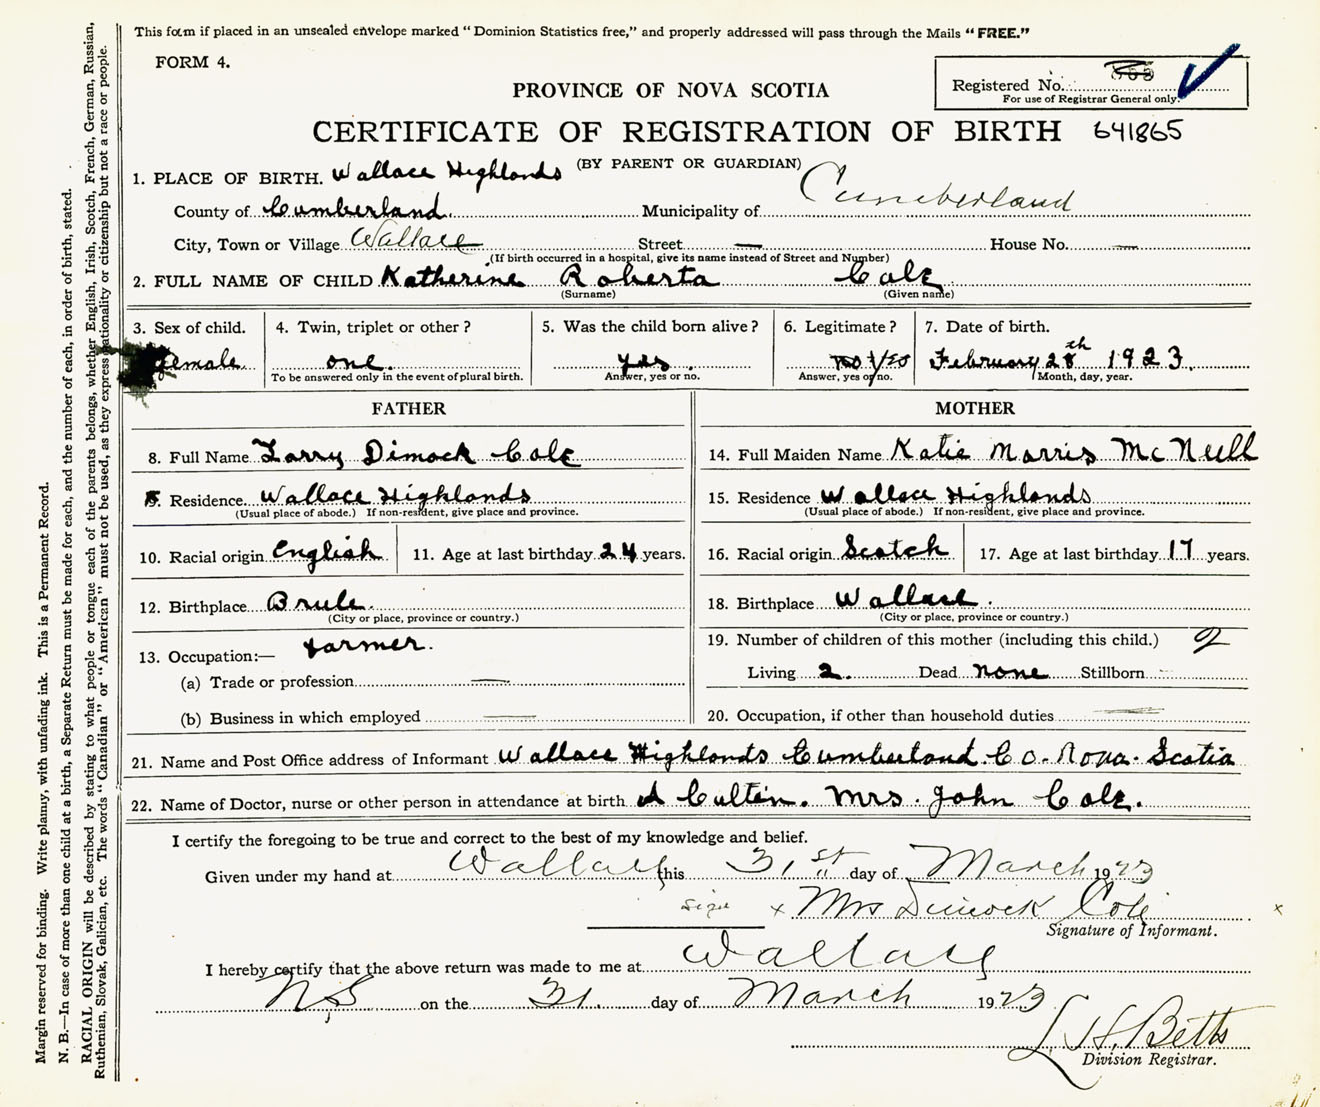 This form if placed in an unsealed envelope marked "Dominion Statistics free," and properly addressed will pass through the Mails "FREE."
FORM 4.
Registered No. 865
For use of Registrar General only.
PROVINCE OF NOVA SCOTIA
CERTIFICATE OF REGISTRATION OF BIRTH 641865
(BY PARENT OR GUARDIAN)
1. PLACE OF BIRTH. Wallace Highlands
County of Cumberland. Municipality of Cumberland
City, Town or Village Wallace Street — House No. —
(If birth occurred in a hospital, give its name instead of Street and Number)
2. FULL NAME OF CHILD Katherine Roberta Cole
(Surname) (Given name)
3. Sex of child. 4. Twin, triplet or other? 5. Was the child born alive? 6. Legitimate? 7. Date of birth.
Female. one. yes. yes February 28th 1923.
To be answered only in the event of plural birth. Answer, yes or no. Answer, yes or no. Month, day, year.
FATHER MOTHER
8. Full Name Larry Dimock Cole 14. Full Maiden Name Katie Morris McNeill
9. Residence. Wallace Highlands 15. Residence Wallace Highlands
(Usual place of abode.) If non-resident, give place and province. (Usual place of abode.) If non-resident, give place and province.
10. Racial origin English 11. Age at last birthday 24 years. 16. Racial origin Scotch 17. Age at last birthday 17 years.
12. Birthplace Brule. 18. Birthplace Wallace.
(City or place, province or country.) (City or place, province or country.)
13. Occupation:— farmer. 19. Number of children of this mother (including this child.) 2
(a) Trade or profession — Living 2. Dead none Stillborn —
(b) Business in which employed — 20. Occupation, if other than household duties —
21. Name and Post Office address of Informant Wallace Highlands Cumberland Co. Nova. Scotia
22. Name of Doctor, nurse or other person in attendance at birth Mrs. John Cole.
I certify the foregoing to be true and correct to the best of my knowledge and belief.
Given under my hand at Wallace this 31st day of March 1923
sign x Mrs Dimock Cole x
Signature of Informant.
I hereby certify that the above return was made to me at Wallace
NS on the 31. day of March 1923
L H. Betts
Division Registrar.
Margin reserved for binding. Write plainly, with unfading ink. This is a Permanent Record.
N. B.—In case of more than one child at a birth, a Separate Return must be made for each, and the number of each, in order of birth, stated.
RACIAL ORIGIN will be described by stating to what people or tongue each of the parents belongs, whether English, Irish, Scotch, French, German, Russian,
Ruthenian, Slovak, Galician, etc. The words "Canadian" or "American" must not be used, as they express nationality or citizenship but not a race or people.